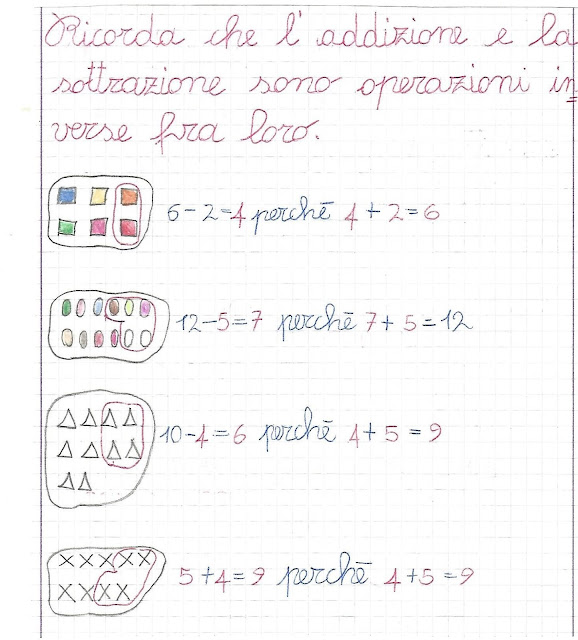 Ricorda che l'addizione e la
sottrazione sono operazioni in
verse fra loro.
6-2=4 perchē 4+2=6
12-5=7 perchē 7+5=12
10-4=6 perchē 4+5=9
5+4=9 perchē 4+5=9